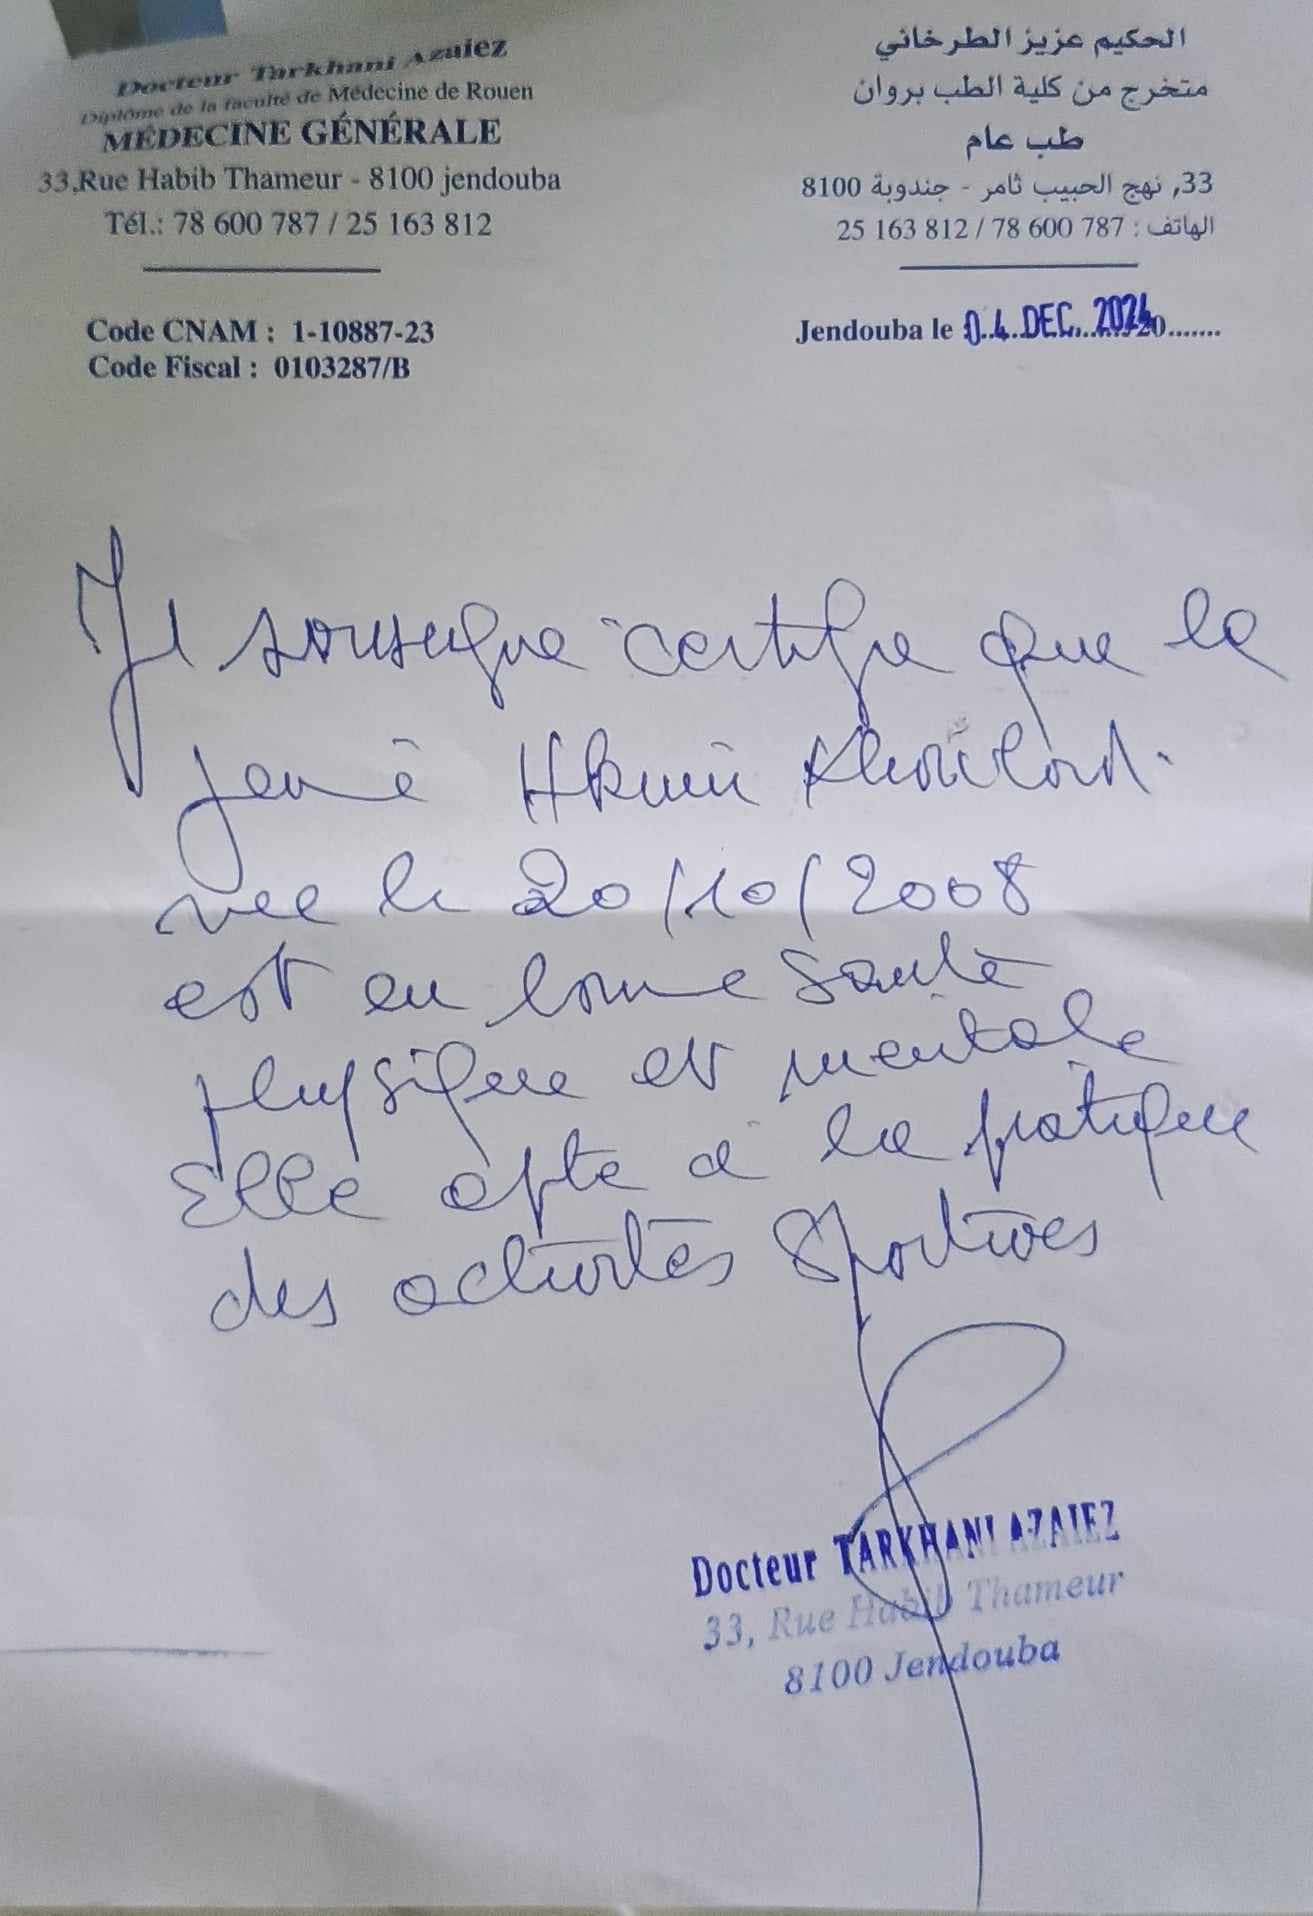 Docteur Tarkhani Azaiez
Diplôme de la faculté de Médecine de Rouen
MÉDECINE GÉNÉRALE
33,Rue Habib Thameur - 8100 jendouba
Tél.: 78 600 787 / 25 163 812
الحكيم عزيز الطرخاني
متخرج من كلية الطب بروان
طب عام
33, نهج الحبيب ثامر - جندوبة 8100
الهاتف : 787 600 78 / 812 163 25
Code CNAM : 1-10887-23
Code Fiscal : 0103287/B
Jendouba le 04 DEC. 2024 20.......
Je soussigne certifie que la
née le 20/10/2008
est en bonne santé
physique et mentale
Elle apte à la pratique
des activités sportives
Docteur TARKHANI AZAIEZ
33, Rue Habib Thameur
8100 Jendouba